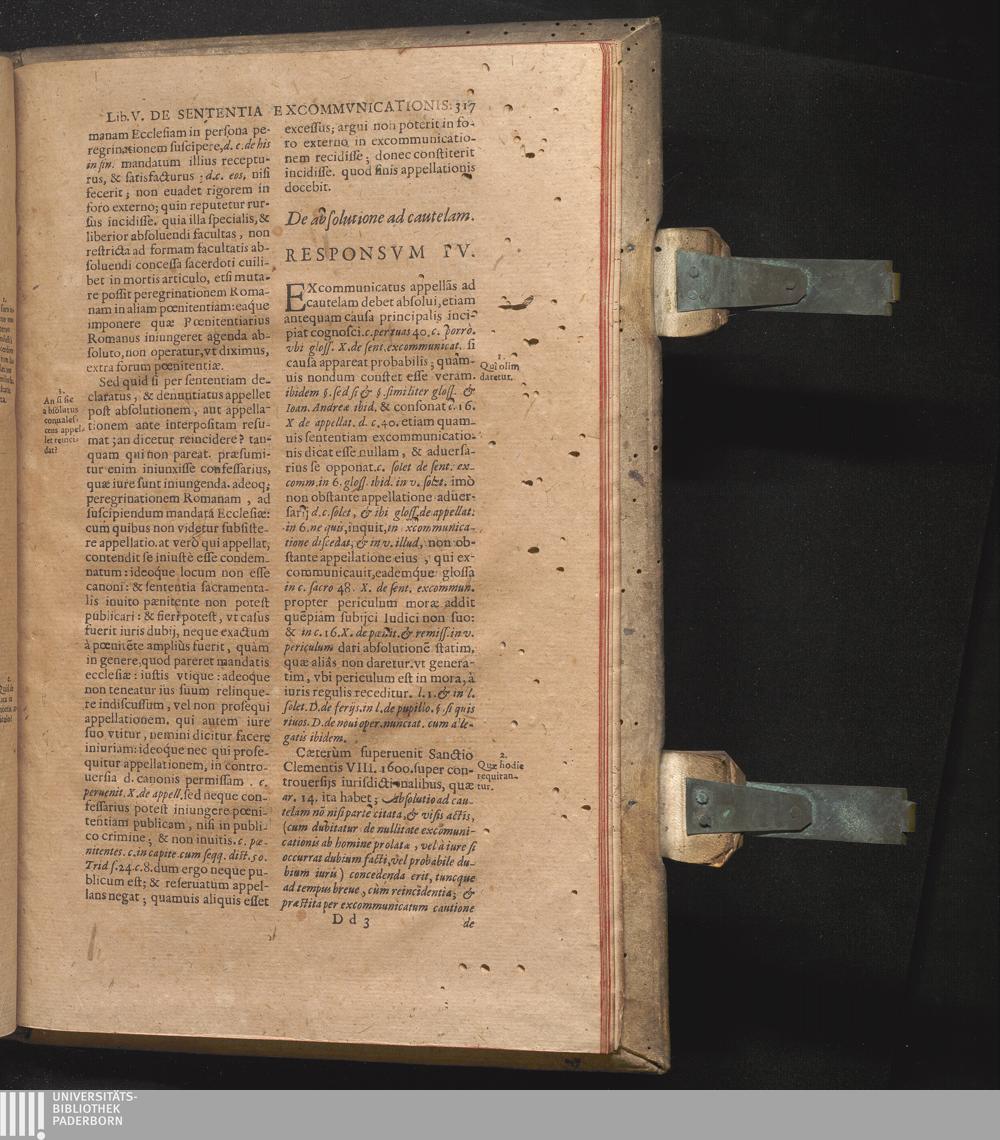 Lib. V. DE SENTENTIA EXCOMMVNICATIONIS: 317
manam Ecclesiam in persona pe-
regrinationem suscipere, d. c. de his
in fin. mandatum illius receptu-
rus, & satisfacturus; d. c. eos, nisi
fecerit; non euadet rigorem in
foro externo; quin reputetur rur-
sus incidisse. quia illa specialis, &
liberior absoluendi facultas, non
restricta ad formam facultatis ab-
soluendi concessa sacerdoti cuili-
bet in mortis articulo, etsi muta-
re possit peregrinationem Roma-
nam in aliam pœnitentiam: eaque
imponere quæ Pœnitentiarius
Romanus iniungeret agenda ab-
soluto, non operatur, vt diximus,
extra forum pœnitentiæ.
Sed quid si per sententiam de-
claratus, & denuntiatus appellet
post absolutionem, aut appella-
tionem ante interpositam resu-
mat; an dicetur reincidere? tan-
quam qui non pareat. præsumi-
tur enim iniunxisse confessarius,
quæ iure sunt iniungenda. adeoq;
peregrinationem Romanam, ad
suscipiendum mandata Ecclesiæ:
cum quibus non videtur subsiste-
re appellatio. at verò qui appellat,
contendit se iniustè esse condem-
natum: ideoque locum non esse
canoni: & sententia sacramenta-
lis inuito pænitente non potest
publicari: & fieri potest, vt casus
fuerit iuris dubij, neque exactum
à pœnitẽte ampliùs fuerit, quàm
in genere, quod pareret mandatis
ecclesiæ: iustis vtique: adeoque
non teneatur ius suum relinque-
re indiscussum, vel non prosequi
appellationem. qui autem iure
suo vtitur, nemini dicitur facere
iniuriam: ideoque nec qui prose-
quitur appellationem, in contro-
uersia d. canonis permissam. c.
peruenit. X. de appell. sed neque con-
fessarius potest iniungere pœni-
tentiam publicam, nisi in publi-
co crimine; & non inuitis. c. pæ-
nitentes. c. in capite cum seqq. dist. 50.
Trid s. 24. c. 8. dum ergo neque pu-
blicum est; & reseruatum appel-
lans negat; quamuis aliquis esset
3.
An si sic
absolutus
conuales-
cens appel-
let reinci-
dat?
excessus; argui non poterit in fo-
ro externo in excommunicatio-
nem recidisse; donec constiterit
incidisse. quod finis appellationis
docebit.
De absolutione ad cautelam.
RESPONSVM IV.
EXcommunicatus appellãs ad
cautelam debet absolui, etiam
antequam causa principalis inci-
piat cognosci. c. per tuas 40. c. porrò.
vbi gloss. X. de sent. excommunicat. si
causa appareat probabilis; quam-
uis nondum constet esse veram.
ibidem §. sed si & §. similiter gloss. &
Ioan. Andreæ ibid. & consonat c. 16.
X de appellat. d. c. 40. etiam quam-
uis sententiam excommunicatio-
nis dicat esse nullam, & aduersa-
rius se opponat. c. solet de sent. ex-
comm. in 6. gloss. ibid. in v. solet. imò
non obstante appellatione aduer-
sarij d. c. solet, & ibi gloss. de appellat.
in 6. ne quis, inquit, in excommunica-
tione discedat, & in v. illud, non ob-
stante appellatione eius, qui ex-
communicauit, eademque glossa
in c. sacro 48. X. de sent. excommun.
propter periculum moræ addit
quẽpiam subijci Iudici non suo:
& in c. 16. X. de pœnit. & remiss. in v.
periculum dari absolutionẽ statim,
quæ aliâs non daretur. vt genera-
tim, vbi periculum est in mora, à
iuris regulis receditur. l. 1. & in l.
solet. D. de ferijs. in l. de pupillo. §. si quis
riuos. D. de noui oper. nunciat. cum alle-
gatis ibidem.
Cæterùm superuenit Sanctio
Clementis VIII. 1600. super con-
trouersijs iurisdictionalibus, quæ
ar. 14. ita habet; Absolutio ad cau-
telam nõ nisi parte citata, & visis actis,
(cum dubitatur de nullitate excomuni-
cationis ab homine prolata, vel à iure si
occurrat dubium facti, vel probabile du-
bium iuris) concedenda erit, tuncque
ad tempus breue, cùm reincidentia; &
præstita per excommunicatum cautione
1.
Qui olim
daretur.
2.
Quæ hodie
requiran-
tur.
D d 3
de
UNIVERSITÄTS-
BIBLIOTHEK
PADERBORN